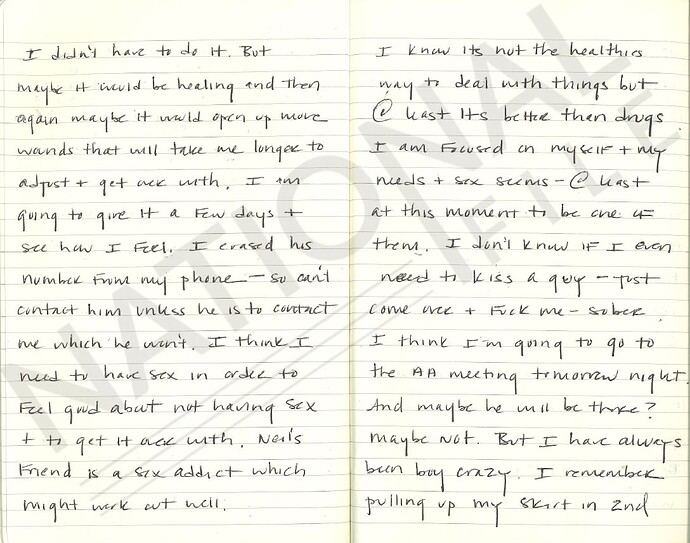 I didn't have to do it. But
maybe it would be healing and then
again maybe it would open up more
wounds that will take me longer to
adjust + get ack with. I am
going to give it a few days +
see how I feel. I erased his
number from my phone — so can't
contact him unless he is to contact
me which he won't. I think I
need to have sex in order to
feel good about not having sex
+ to get it ack with. Neil's
Friend is a sex addict which
might work out well.
I know its not the healthies
way to deal with things but
@ least its better than drugs
I am focused on myself + my
needs + sex seems - @ least
at this moment to be one of
them. I don't know if I even
need to kiss a guy - just
come over + fuck me - sober.
I think I'm going to go to
the AA meeting tomorrow night.
And maybe he will be there?
maybe not. But I have always
been boy crazy. I remember
pulling up my skirt in 2nd
NATIONAL FILE